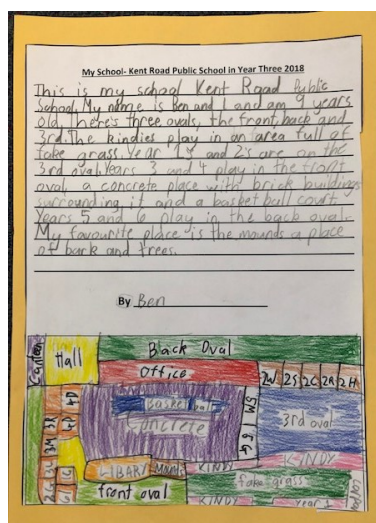 My School- Kent Road Public School in Year Three 2018
This is my school Kent Road Public
School. My name is Ben and I and am 9 years
old. There's three ovals, the front, back and
3rd. The kindies play in an area full of
fake grass. Year 1s and 2's are on the
3rd oval. Years 3 and 4 play in the front
oval, a concrete place with brick buildings
surrounding it and a basket ball court.
Years 5 and 6 play in the back oval.
My favourite place is the mounds a place
of bark and trees.
By Ben
Canteen
Hall
Back Oval
Office
2W 2S 2C 2R 2H
4D
Basket ball
Concrete
5M
3rd oval
3R
3M
3L
LIBARY
KINDY
KINDY
front oval
fake grass
KINDY
Year 1